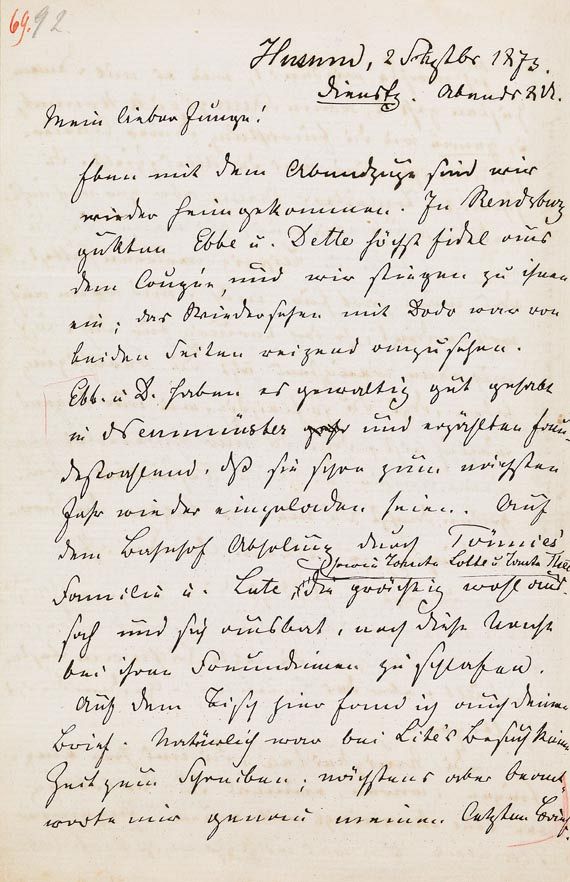 69. 92.
Husum, 2 Septbr 1873.
Dienstg. Abends 8 U.
Mein lieber Junge!
Eben mit dem Abendzuge sind wir
wieder heimgekommen. In Rendsburg
guckten Ebbe u. Dette höchst fidel aus
dem Coupée, und wir stiegen zu ihnen
ein; das Wiedersehen mit Dodo war von
beiden Seiten reizend anzusehen.
Ebb. u. D. haben es gewaltig gut gehabt
in Neumünster und erzählten freu-
destrahlend, dß sie schon zum nächsten
Jahr wieder eingeladen seien. Auf
dem Bahnhof Abholung durch Tönnies'
sowie Tante Lotte u Tante
Familie u. Lute, die prächtig wohl aus-
sah und sich ausbat, noch diese Nacht
bei ihren Freundinnen zu schlafen.
Auf dem Tisch hier fand ich auch deinen
Brief. Natürlich war bei Lite's Besuch keine
Zeit zum Schreiben; nächstens aber beant-
worte mir genau meinen letzten Brief.